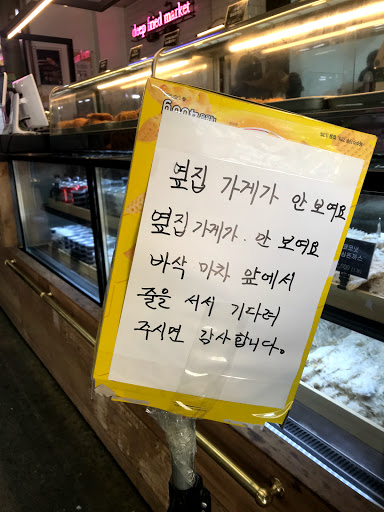 deep fried market
옆집 가게가 안 보여요
옆집 가게가. 안 보여요
바삭 마차 앞에서
줄을 서서 기다려
주시면 감사합니다。